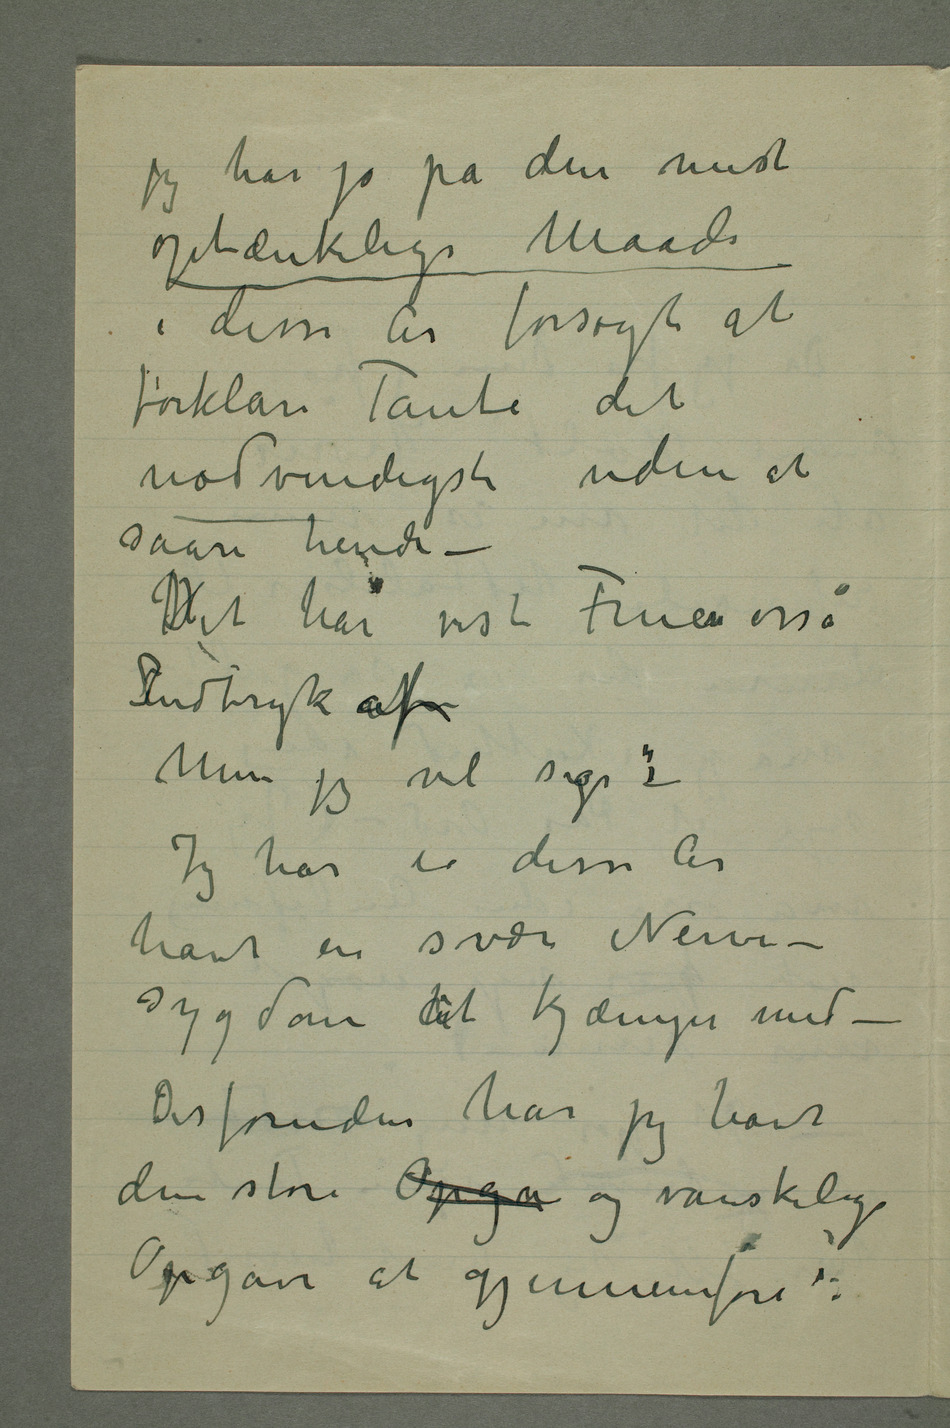 jeg har jo på den mest
optænkelige Maade
i disse År forsøgt at
forklare Tante det
nødvendigste uden at
saare hende –
Det har vist Fruen osså
Indtryk af
Men jeg vil sige:
Jeg har i disse År
havt en svær Nerve–
sygdom at kjæmpe med –
Desforuden har jeg havt
den store Opga og vanskelige
Opgave at gjennemføre: